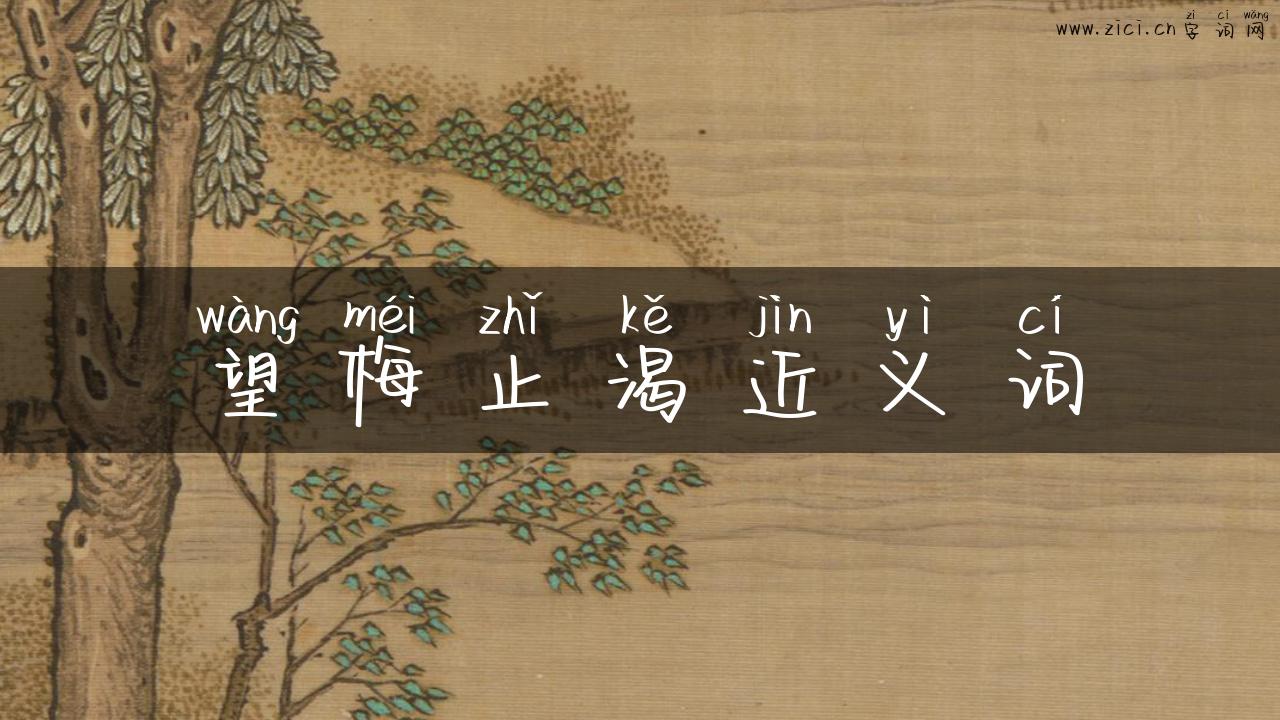 zì cí wǎng
www.zici.cn 字词网
wàng méi zhǐ kě jìn yì cí
望梅止渴近义词